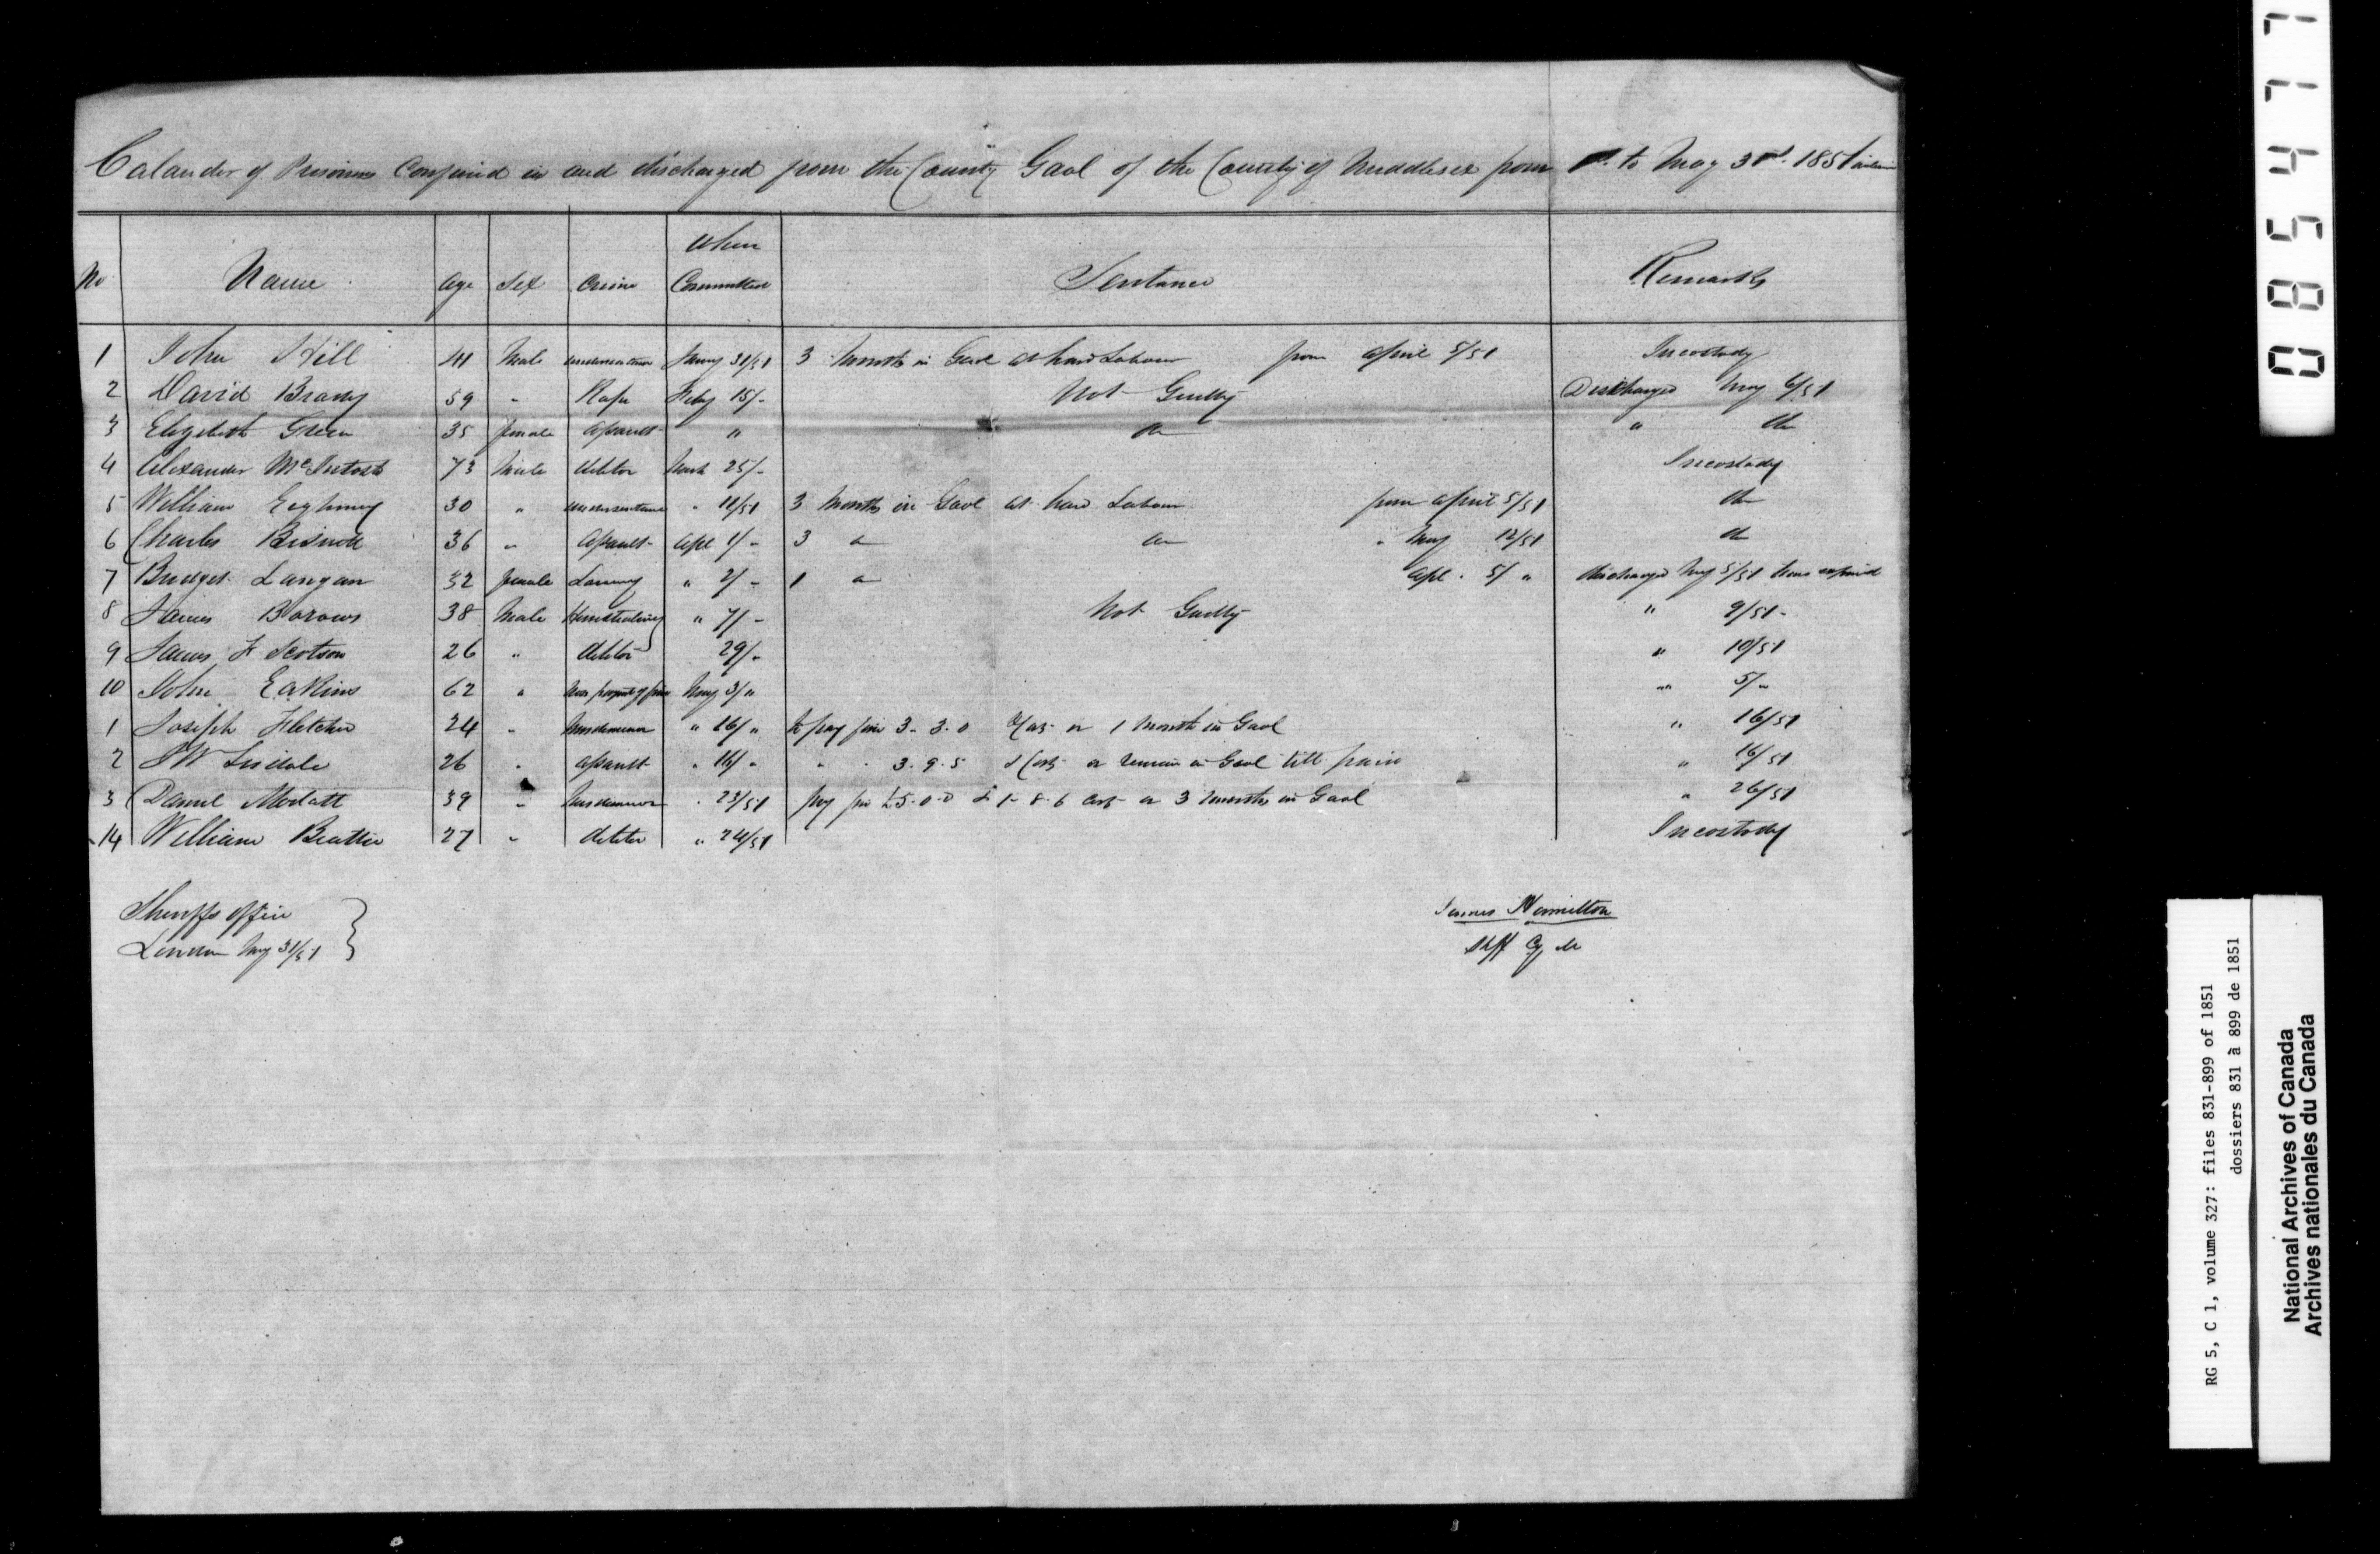 Calander of Prisoners Confined in and discharged from the County Gaol of the County of Middlesex from 1st. to May 31st. 1851
No Name age Sex Crime When Committed Sentance Remarks
1 John Hill 41 Male Jany 31/51 3 Months in Gaol at hard Labour from april 5/51 Incostody
2 David Brady 59 " Rape Feby 15/- Not Guilty Discharged May 6/51
3 Elizebeth Green 35 female assault " do " do
4 Alexander McIntosh 73 Male debtor March 25/- Incostady
5 William 30 " " 18/51 3 Months in Gaol at hard Labour from april 5/51 do
6 Charles 36 " Assault Apl 1/- 3 do do " May 12/51 do
7 Bridget Langan 32 female Larceny " 2/- 1 do Apl. 5/ " discharged May 5/51 time expired
8 James Borows 38 Male Horsstealing " 7/- Not Guilty " 9/51-
9 James F Scotson 26 " debtor 29/- " 10/51
10 John Eakins 62 " Non payment of fine May 3/" " 5/"
1 Joseph Fletcher 24 " Misdemenor " 16/" to pay fine 3-3-0 & Cos or 1 Month in Gaol " 16/51
2 26 " assault " 16/ " " " 3.9.5 & Cost or remain in Gaol till paid " 16/51
3 Daniel 39 " Misdemenor " 23/51 pay fine £5-0-0 & 1-8-6 Cost or 3 months in Gaol " 26/51
14 William Beattie 27 " debtor " 24/51 Incostody
Sheriffs office
London May 31/51
James Hamilton
Shff Cy M
085477
RG 5, C 1, volume 327: files 831-899 of 1851
dossiers 831 à 899 de 1851
National Archives of Canada
Archives nationales du Canada